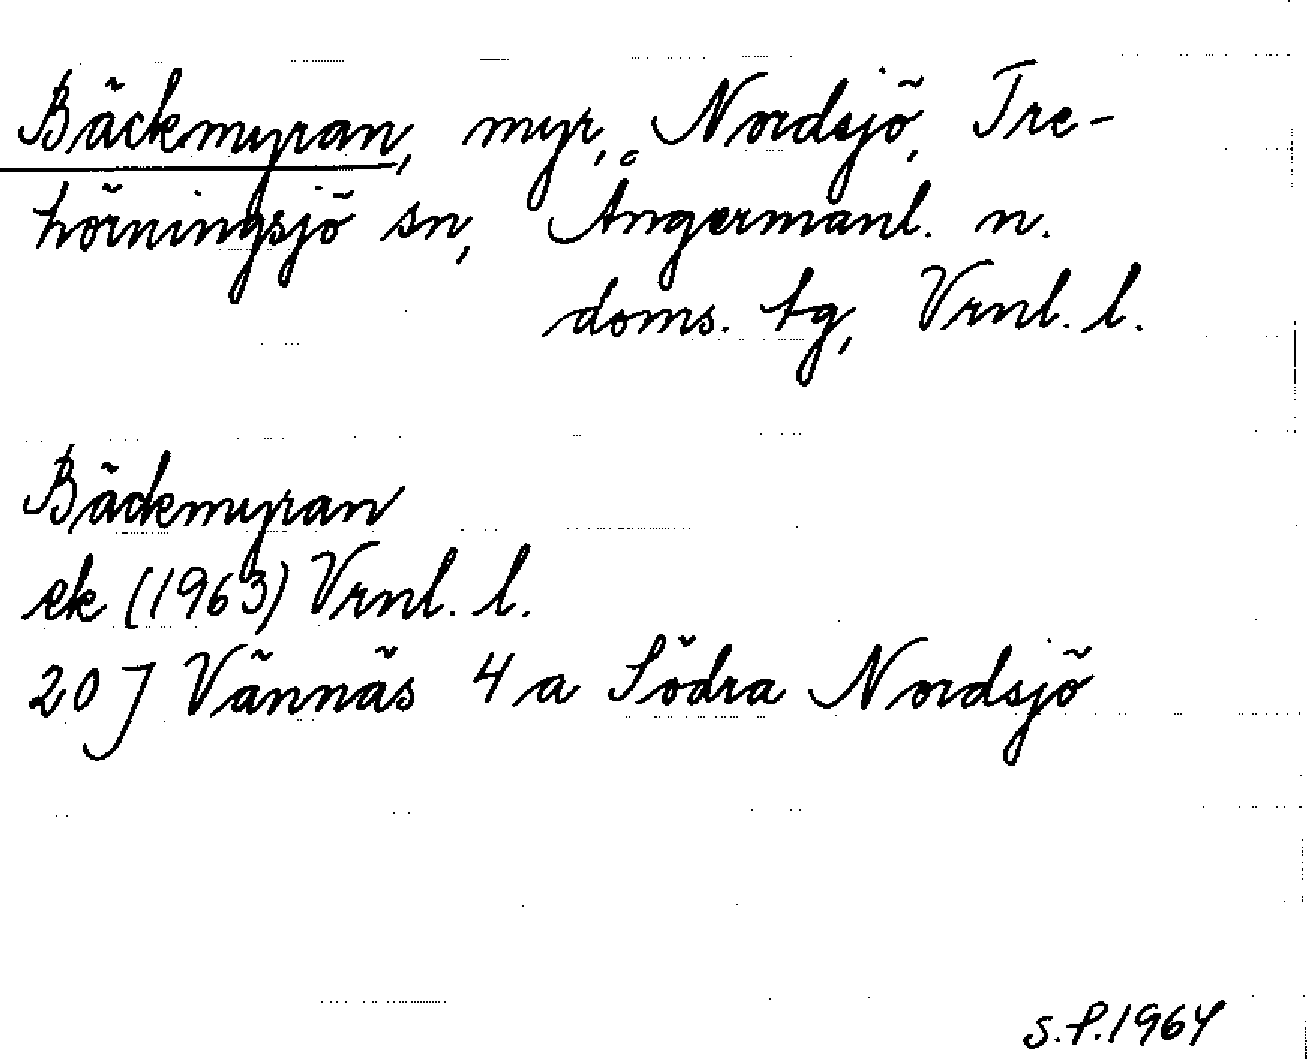 Bäckmyran, myr, Nordsjö, Tre-
hörningsjö sn, Ångermanl. n.
doms. tg, Vrnl. l.
Bäckmyran
ek (1963) Vrnl. l.
20 J Vännäs 4 a Södra Nordsjö
S.P. 1964